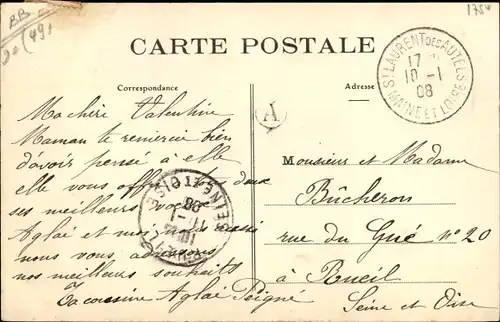 BB
(49)
1784
CARTE POSTALE
Correspondance
Adresse
ST LAURENT DES AUTELS
17
10 - 1
08
MAINE ET LOIRE
A
Ma chéri Valentine
Maman te remercie bien
d'avoir pensé à elle
elle vous offre deux
ses meilleurs voeux
Aglaé et moi aussi
nous vous adressons
nos meilleurs souhaits
Ta cousine Aglaé Peigné
Monsieur et Madame
Bûcheron
rue du Gué n° 20
à Rueil
Seine et Oise
SEINE ET OISE
11 - 1
08